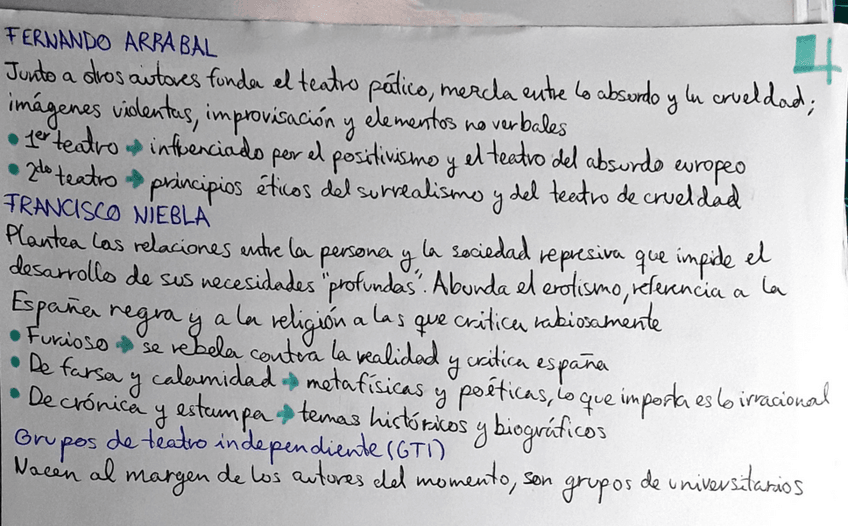 FERNANDO ARRABAL
4
Junto a otros autores funda el teatro pático, mezcla entre lo absurdo y la crueldad;
imágenes violentas, improvisación y elementos no verbales
• 1er teatro → influenciado por el positivismo y el teatro del absurdo europeo
• 2do teatro → principios éticos del surrealismo y del teatro de crueldad
FRANCISCO NIEBLA
Plantea las relaciones entre la persona y la sociedad represiva que impide el
desarrollo de sus necesidades "profundas". Abunda el erotismo, referencia a la
España negra y a la religión a las que critica rabiosamente
• Furioso → se rebela contra la realidad y critica españa
• De farsa y calamidad → metafísicas y poéticas, lo que importa es lo irracional
• De crónica y estampa → temas históricos y biográficos
Grupos de teatro independiente (GTI)
Nacen al margen de los autores del momento, son grupos de universitarios